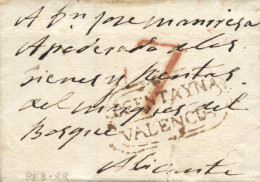 A Dn Jose Manrresa
Apoderado de los
vienes y Rentas
del marques del
Bosque
Alicante
7
CONCENTAYNA
VALENCIA